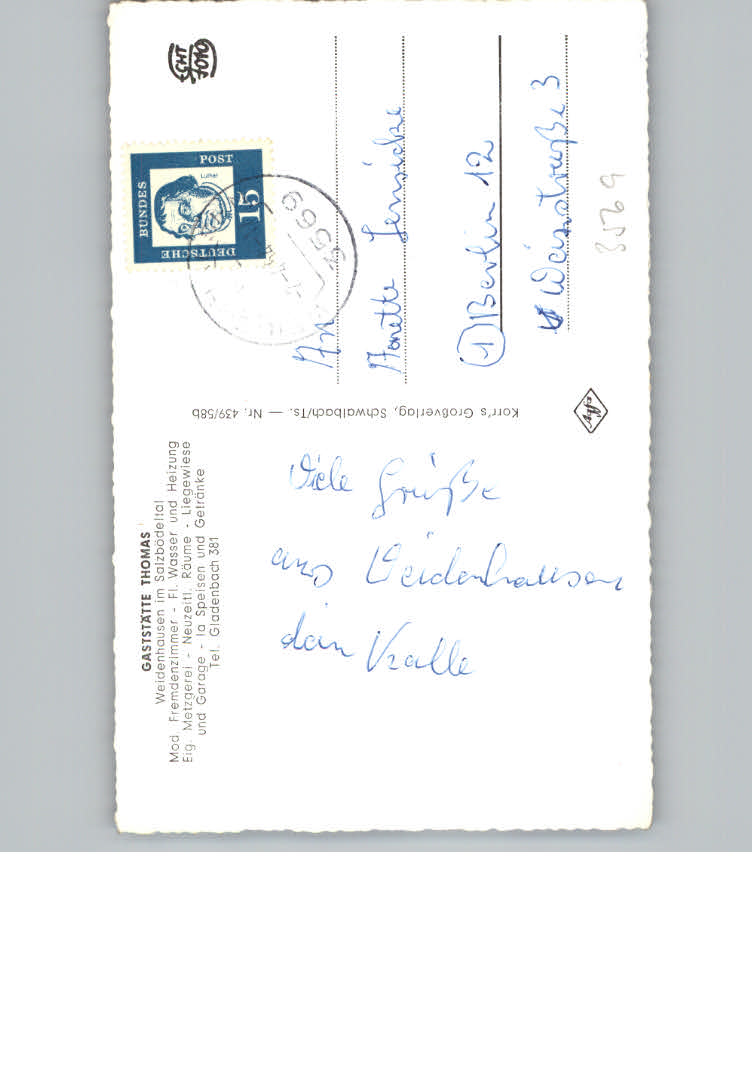 GASTSTÄTTE THOMAS
Weidenhausen im Salzbödeltal
Mod. Fremdenzimmer - Fl. Wasser und Heizung
Eig. Metzgerei - Neuzeitl. Räume - Liegewiese
und Garage - Ia Speisen und Getränke
Tel. Gladenbach 381
Viele Grüße
aus Weidenhausen
dein Kalle
Korr's Großverlag, Schwalbach/Ts. — Nr. 439/58b
ECHT
FOTO
DEUTSCHE
BUNDES
POST
15
Luther
3569
An
Annette
① Berlin 12
3
3569